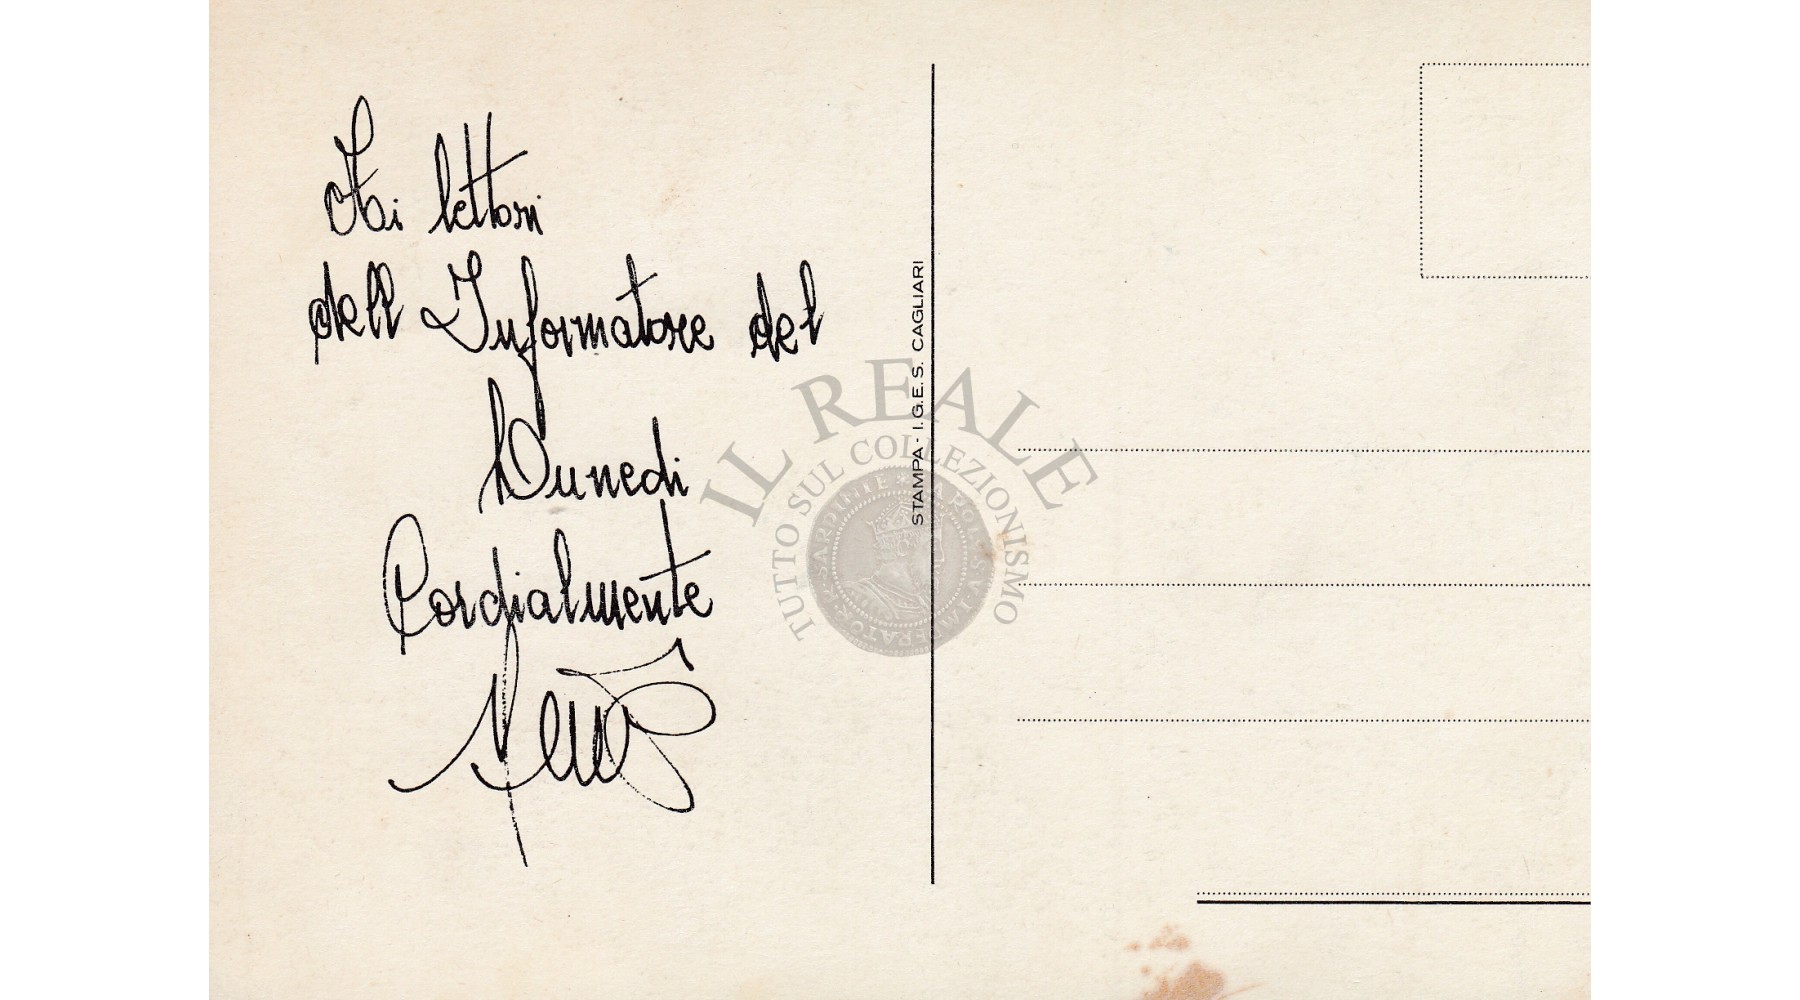 Ai lettori
dell Informatore del
Lunedi
Cordialmente
STAMPA - I.G.E.S. CAGLIARI
IL REALE
TUTTO SUL COLLEZIONISMO